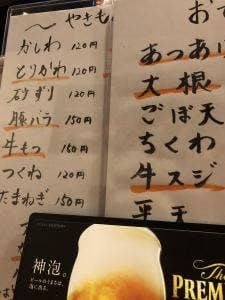 〜やきも
かしわ 120円
とりかわ 120円
砂ずり 120円
豚バラ 150円
牛もつ 150円
つくね 120円
たまねぎ 150円
おで
あつあげ
大根
ごぼ天
ちくわ
牛スジ
平天
神泡。
The
PREM